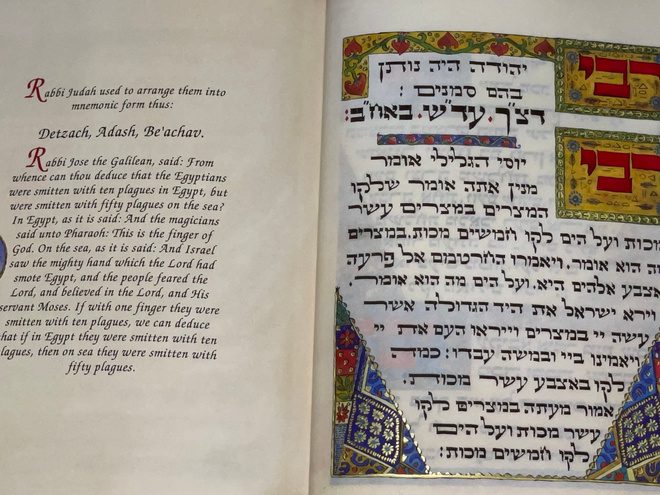 Rabbi Judah used to arrange them into
mnemonic form thus:
Detzach, Adash, Be'achav.
Rabbi Jose the Galilean, said: From
whence can thou deduce that the Egyptians
were smitten with ten plagues in Egypt, but
were smitten with fifty plagues on the sea?
In Egypt, as it is said: And the magicians
said unto Pharaoh: This is the finger of
God. On the sea, as it is said: And Israel
saw the mighty hand which the Lord had
smote Egypt, and the people feared the
Lord, and believed in the Lord, and His
servant Moses. If with one finger they were
smitten with ten plagues, we can deduce
hat if in Egypt they were smitten with ten
lagues, then on sea they were smitten with
fifty plagues.
רבי יהודה היה נותן
בהם סמנים:
דצ"ך. עד"ש. באח"ב:
רבי יוסי הגלילי אומר
מנין אתה אומר שלקו
המצרים במצרים עשר
מכות ועל הים לקו חמשים מכות. במצרים
מה הוא אומר. ויאמרו החרטמים אל פרעה
אצבע אלהים היא. ועל הים מה הוא אומר.
וירא ישראל את היד הגדולה אשר
עשה יי במצרים וייראו העם את יי
ויאמינו ביי ובמשה עבדו: כמה
לקו באצבע עשר מכות.
אמור מעתה במצרים לקו
עשר מכות ועל הים
לקו חמשים מכות: